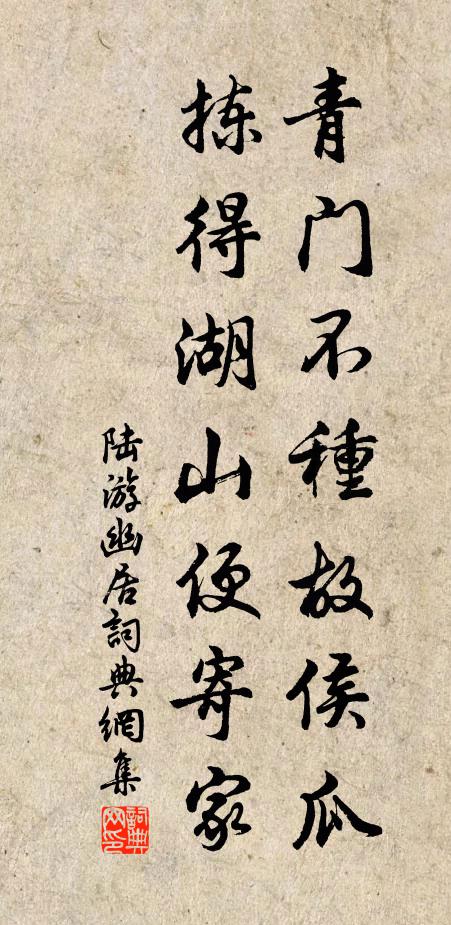 青门不種故侯瓜
拣得湖山便寄家
陆游幽居詞典網集
詞典网印